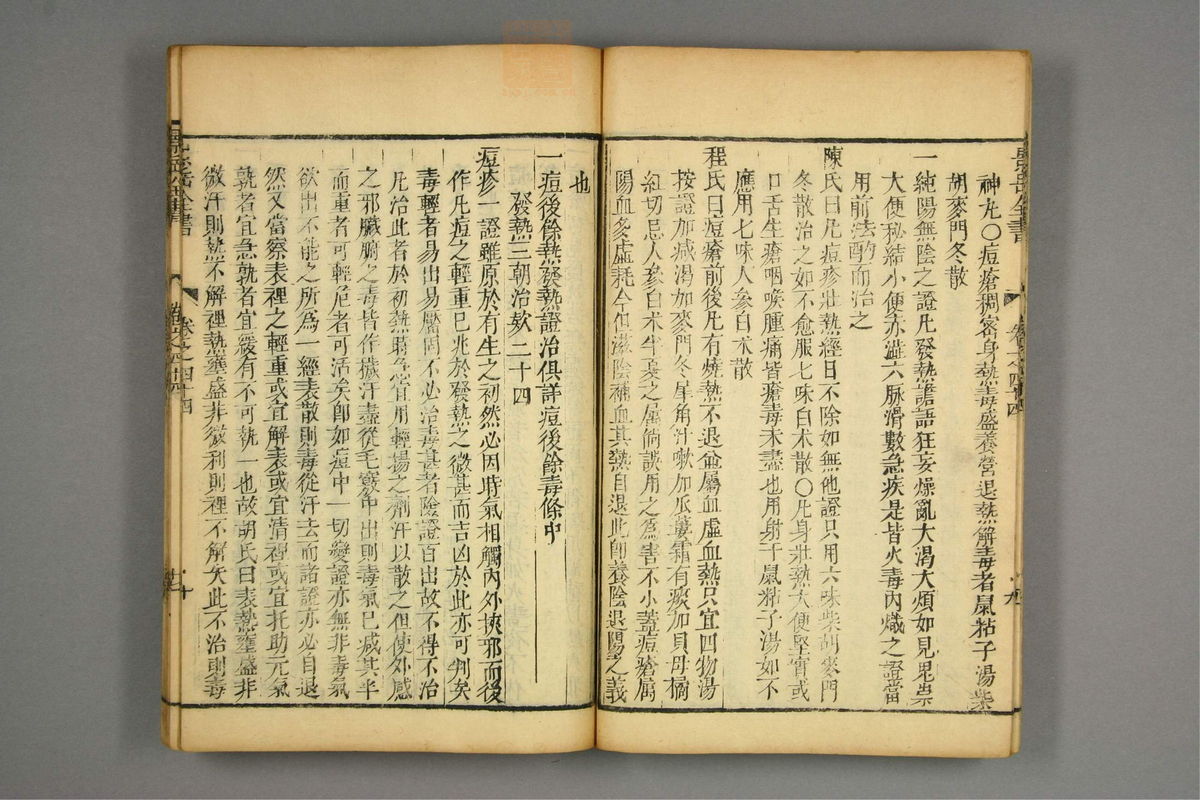 景岳全書
卷之四十四
神丸〇痘瘡稠密身熱毒盛養營退熱解毒者鼠粘子湯柴
胡麥門冬散
一純陽無陰之證凡發熱譫語狂妄燥亂大渴大煩如見鬼祟
大便秘結小便亦澁六脉滑數急疾是皆火毒內熾之證當
用前法酌而治之
陳氏曰凡痘疹壯熱經日不除如無他證只用六味柴胡麥門
冬散治之如不愈服七味白朮散〇凡身壯熱大便堅實或
口舌生瘡咽喉腫痛皆瘡毒未盡也用射干鼠粘子湯如不
應用七味人參白朮散
程氏曰痘瘡前後凡有燒熱不退並屬血虛血熱只宜四物湯
按證加減渴加麥門冬犀角汁嗽加瓜蔞霜有痰加貝母橘
紅切忌人參白朮半夏之屬倘誤用之為害不小蓋痘瘡屬
陽血多虛耗今但滋陰補血其熱自退此即養陰退陽之義
也
一痘後餘熱發熱證治俱詳痘後餘毒條中
發熱三朝治欵二十四
痘疹一證雖原於有生之初然必因時氣相觸內外挾邪而後
作凡痘之輕重已兆於發熱之微甚而吉凶於此亦可判矣
毒輕者易出易靨固不必治毒甚者陰證百出故不得不治
凡治此者於初熱時急宜用輕揚之劑汗以散之但使外感
之邪臟腑之毒皆作穢汗盡從毛竅中出則毒氣已減其半
而重者可輕危者可活矣即如痘中一切變證亦無非毒氣
欲出不能之所為一經表散則毒從汗去而諸證亦必自退
然又當察表裡之輕重或宜解表或宜清裡或宜托助元氣
孰者宜急孰者宜緩有不可執一也故胡氏曰表熱壅盛非
微汗則熱不解裡熱壅盛非微利則裡不解矣此不治則毒
景岳全書
卷之四十四